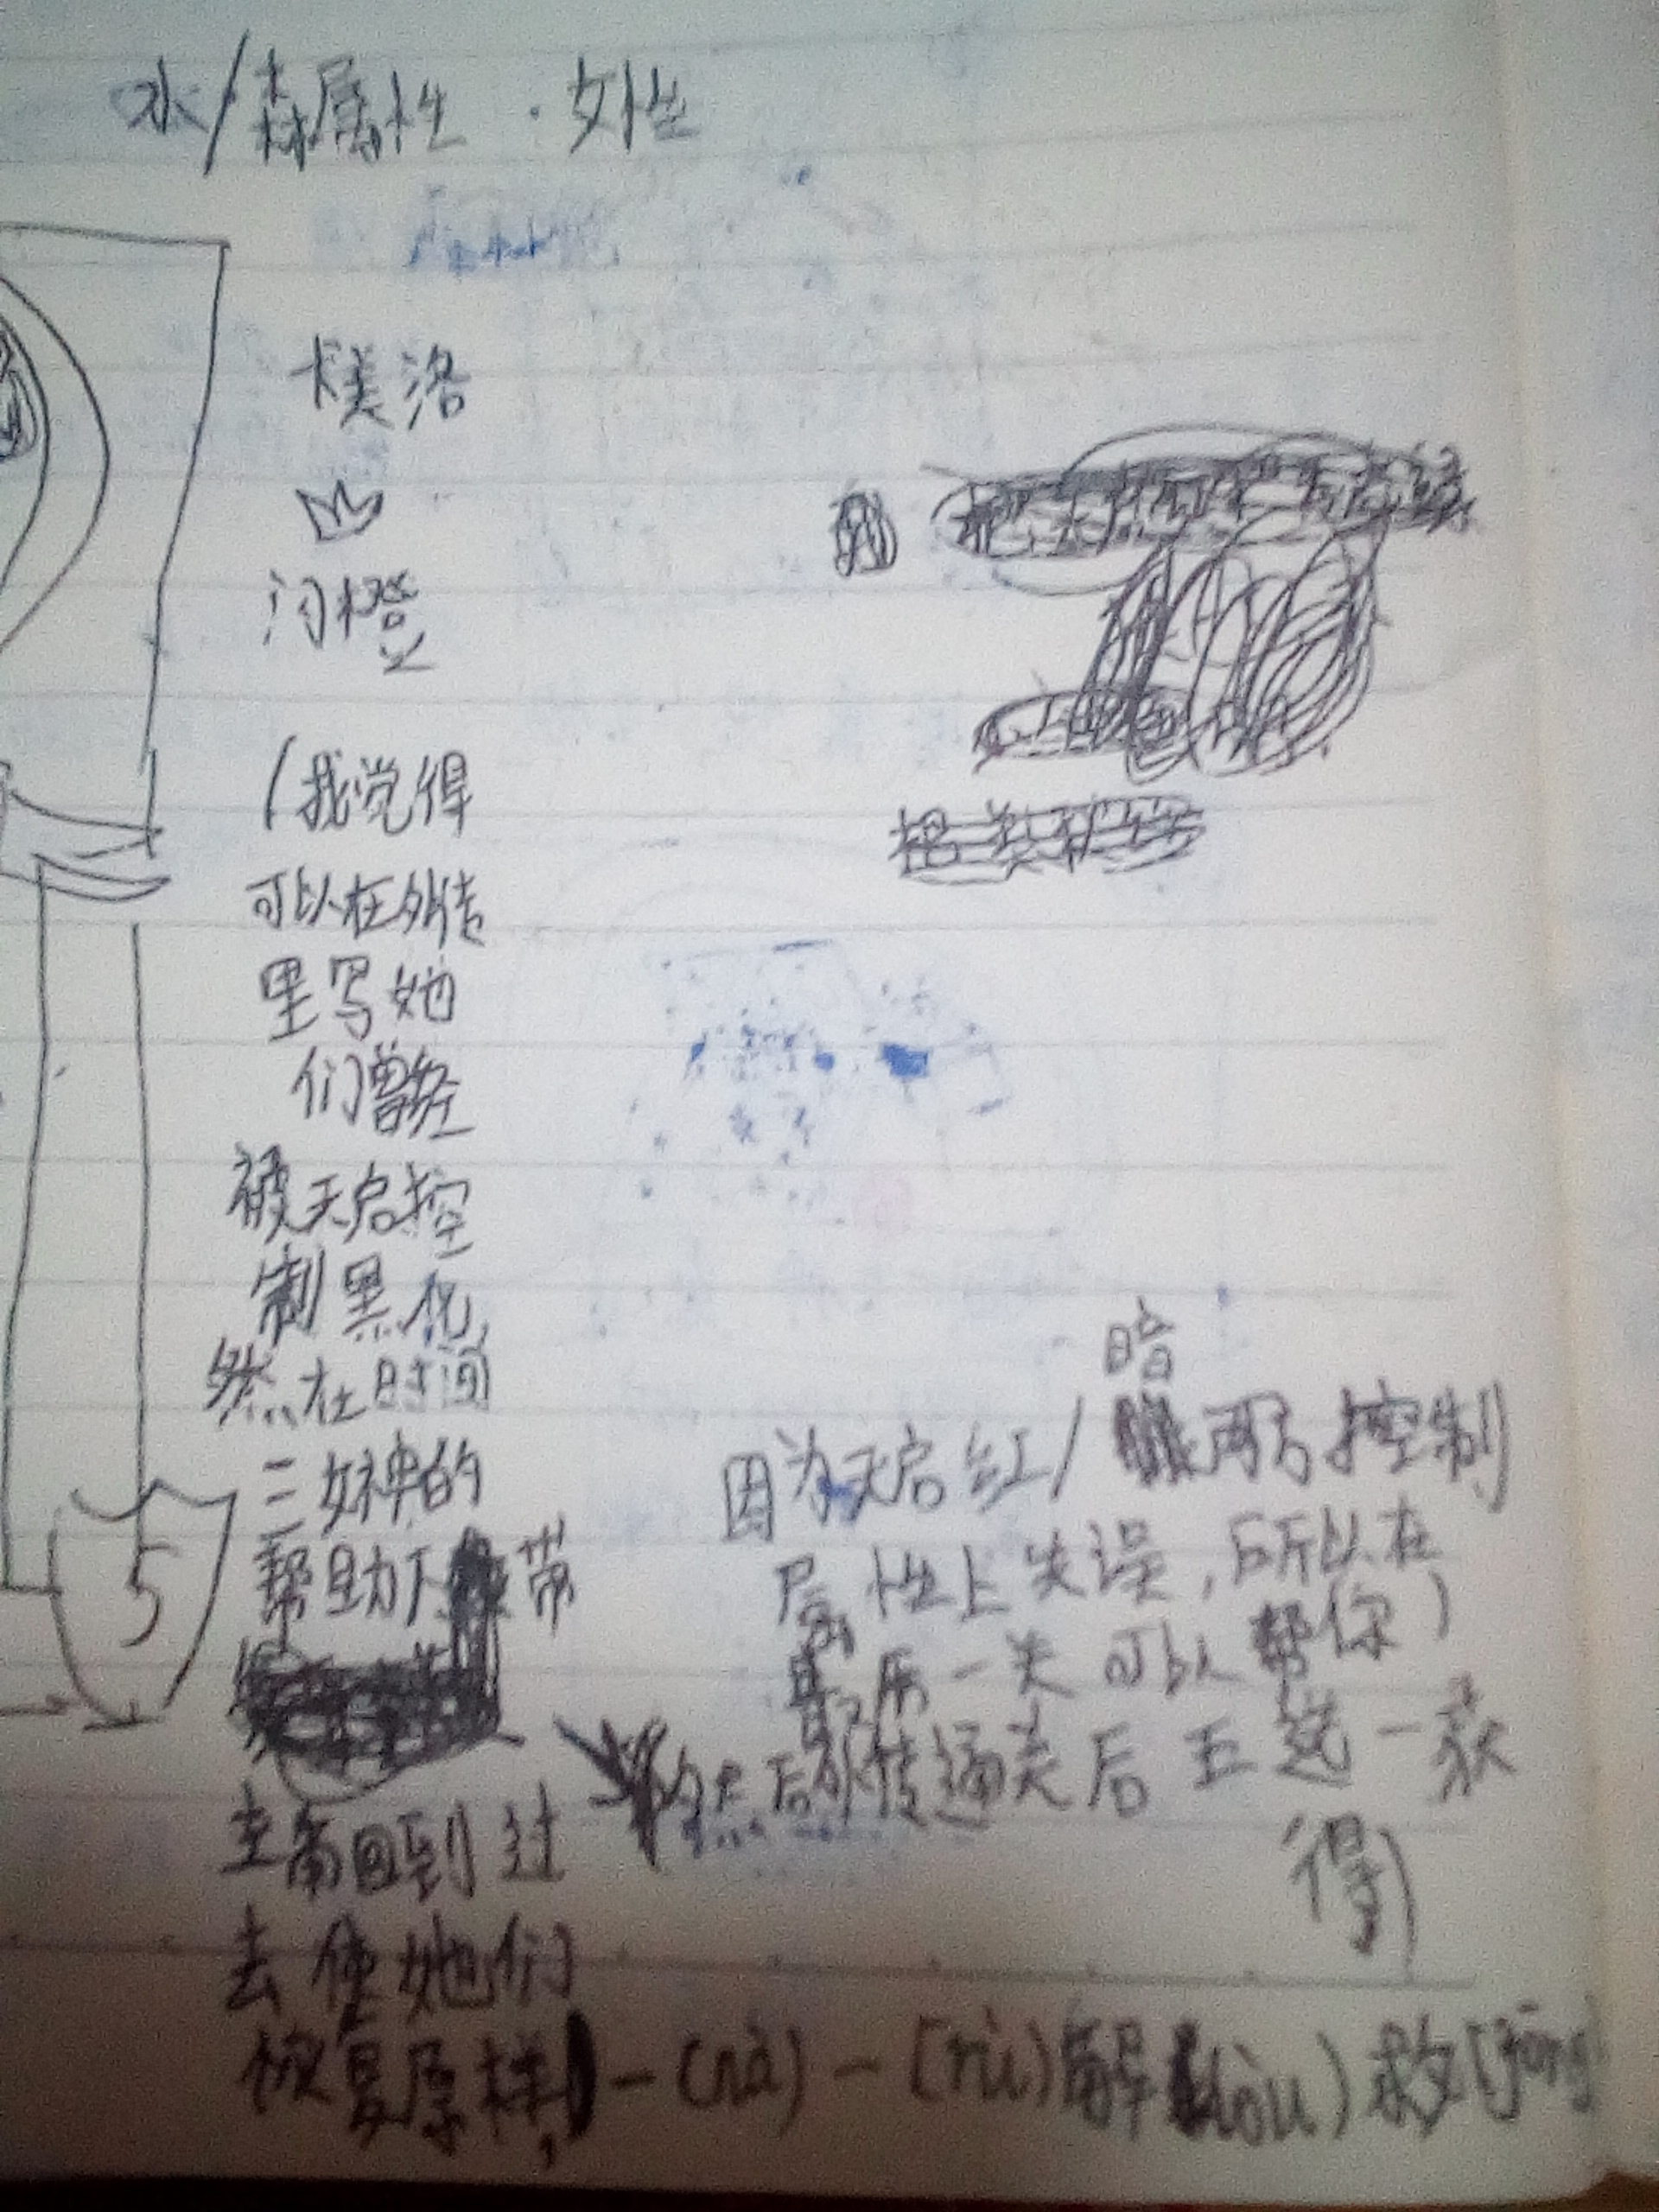 水/森属性·女性
洛
橙
(我觉得
可以在外传
里写她
们曾经
被天启控
制黑化
然在时间
三女神的
帮助下带
主角回到过
去使她们
恢复原样,)-(nà)-[rù)解(hòu)救[jīng
暗
因为天启红/控制
属性上失误,所以在
最后一关可以帮你)
然后外传通关后五选一获
得)
5